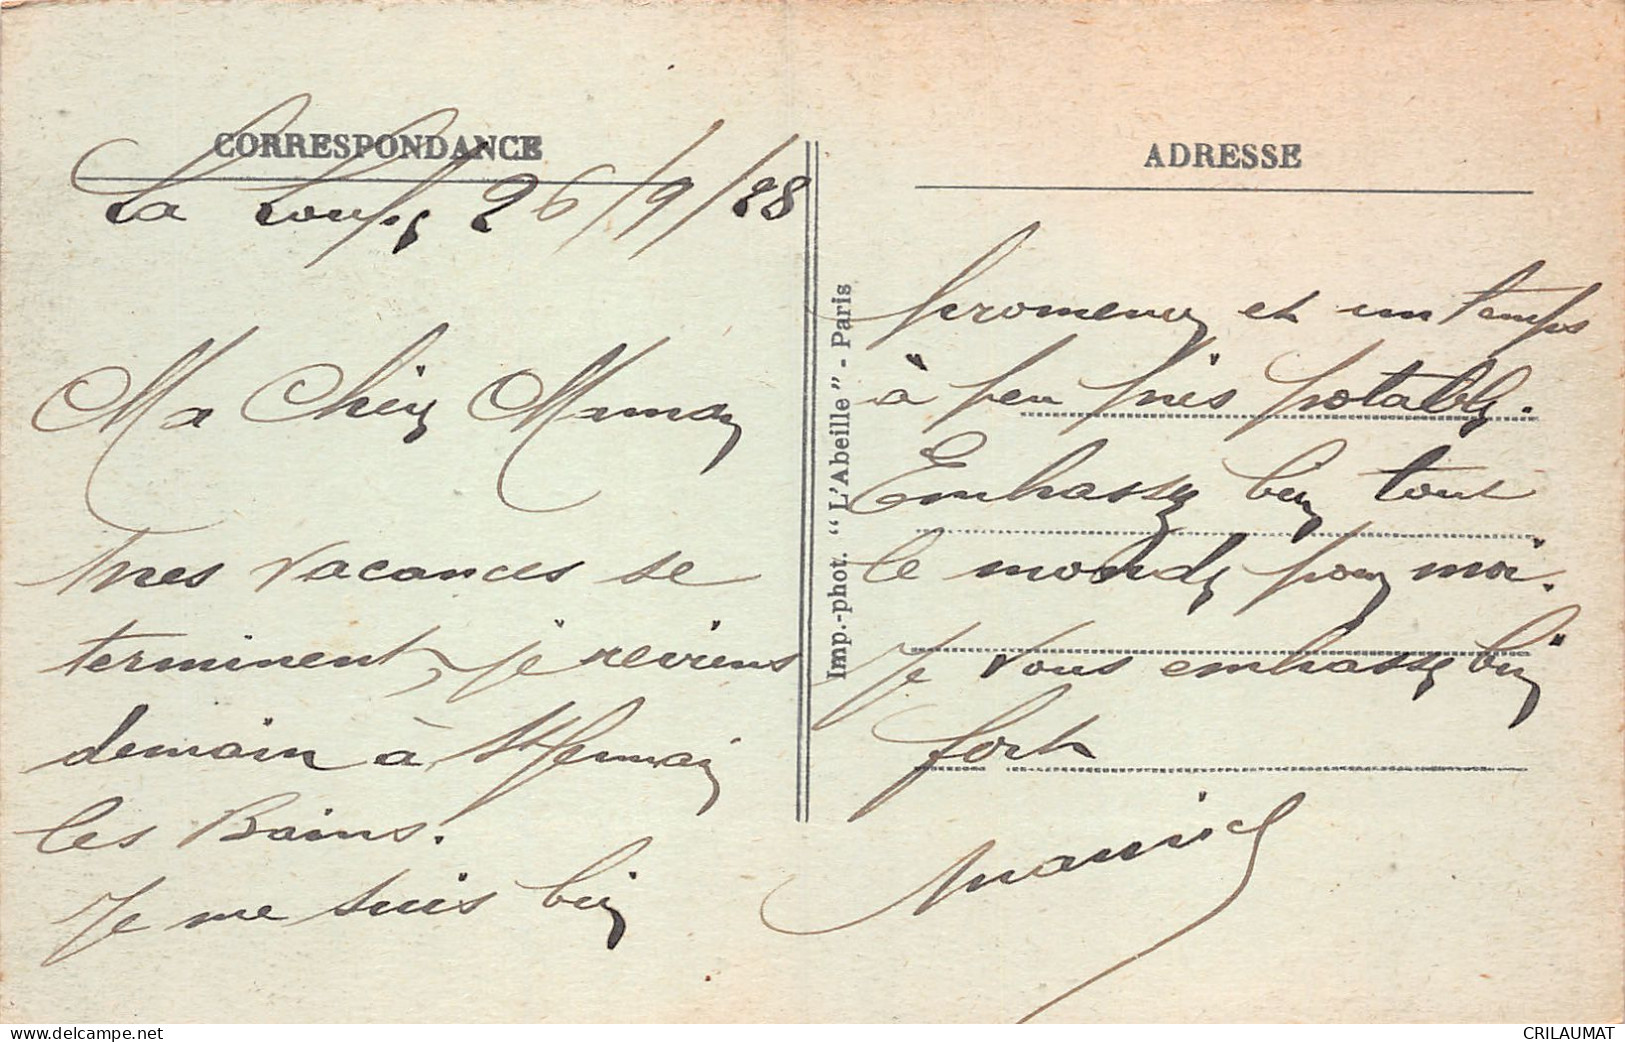 CORRESPONDANCE
La Loupe, 26/9/28
Ma Chère Maman
Mes vacances se
terminent, je reviens
demain à St Germain
les Bains.
Je me suis bien
ADRESSE
promener et un temps
à peu près potable.
Embrassez bien tout
le monde pour moi.
Je vous embrasse bien
fort
Imp.-phot. "L'Abeille" - Paris
www.delcampe.net
CRILAUMAT